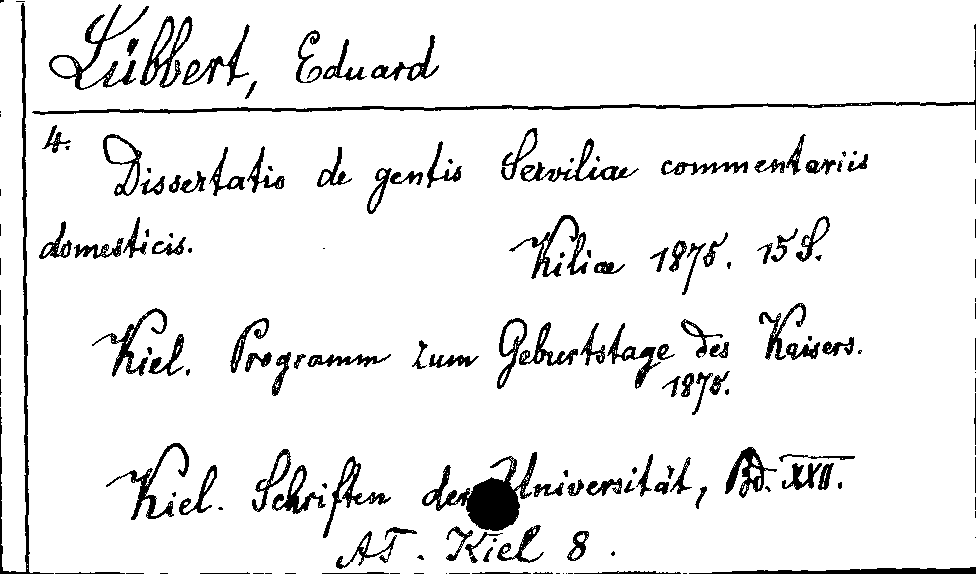 Lübbert, Eduard
4.
Dissertatio de gentis Serviliae commentariis
domesticis.
Kiliae 1875. 15 S.
Kiel. Programm zum Geburtstage des Kaisers.
1875.
Kiel. Schriften der Universität, Bd. XXII.
AT. Kiel 8.